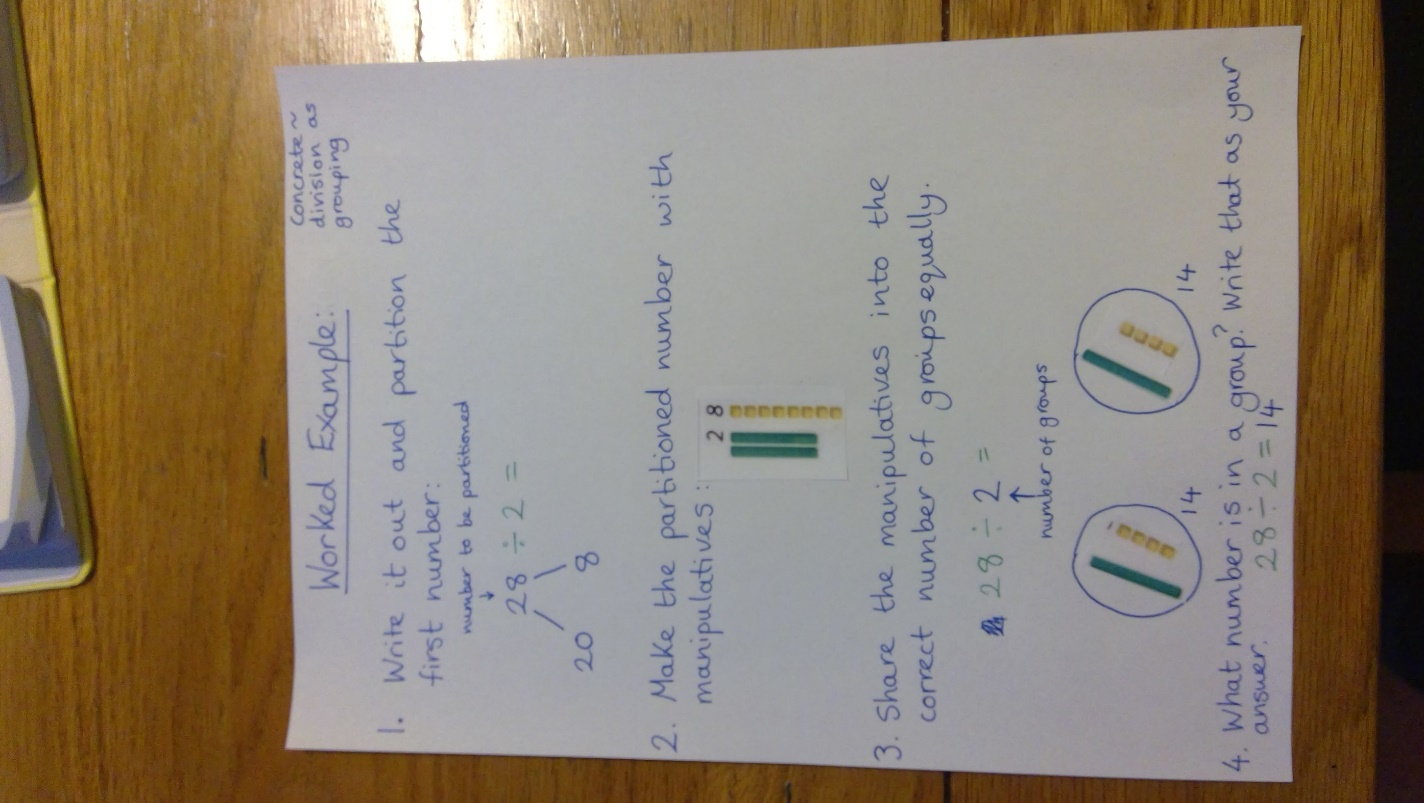 Concrete ~
division as
grouping
Worked Example:
1. Write it out and partition the
first number:
number to be partitioned
↓
28 ÷ 2 =
20 8
2. Make the partitioned number with
manipulatives:
2 8
3. Share the manipulatives into the
correct number of groups equally.
28 ÷ 2 =
↑
number of groups
14 14
4. What number is in a group? Write that as your
answer.
28 ÷ 2 = 14